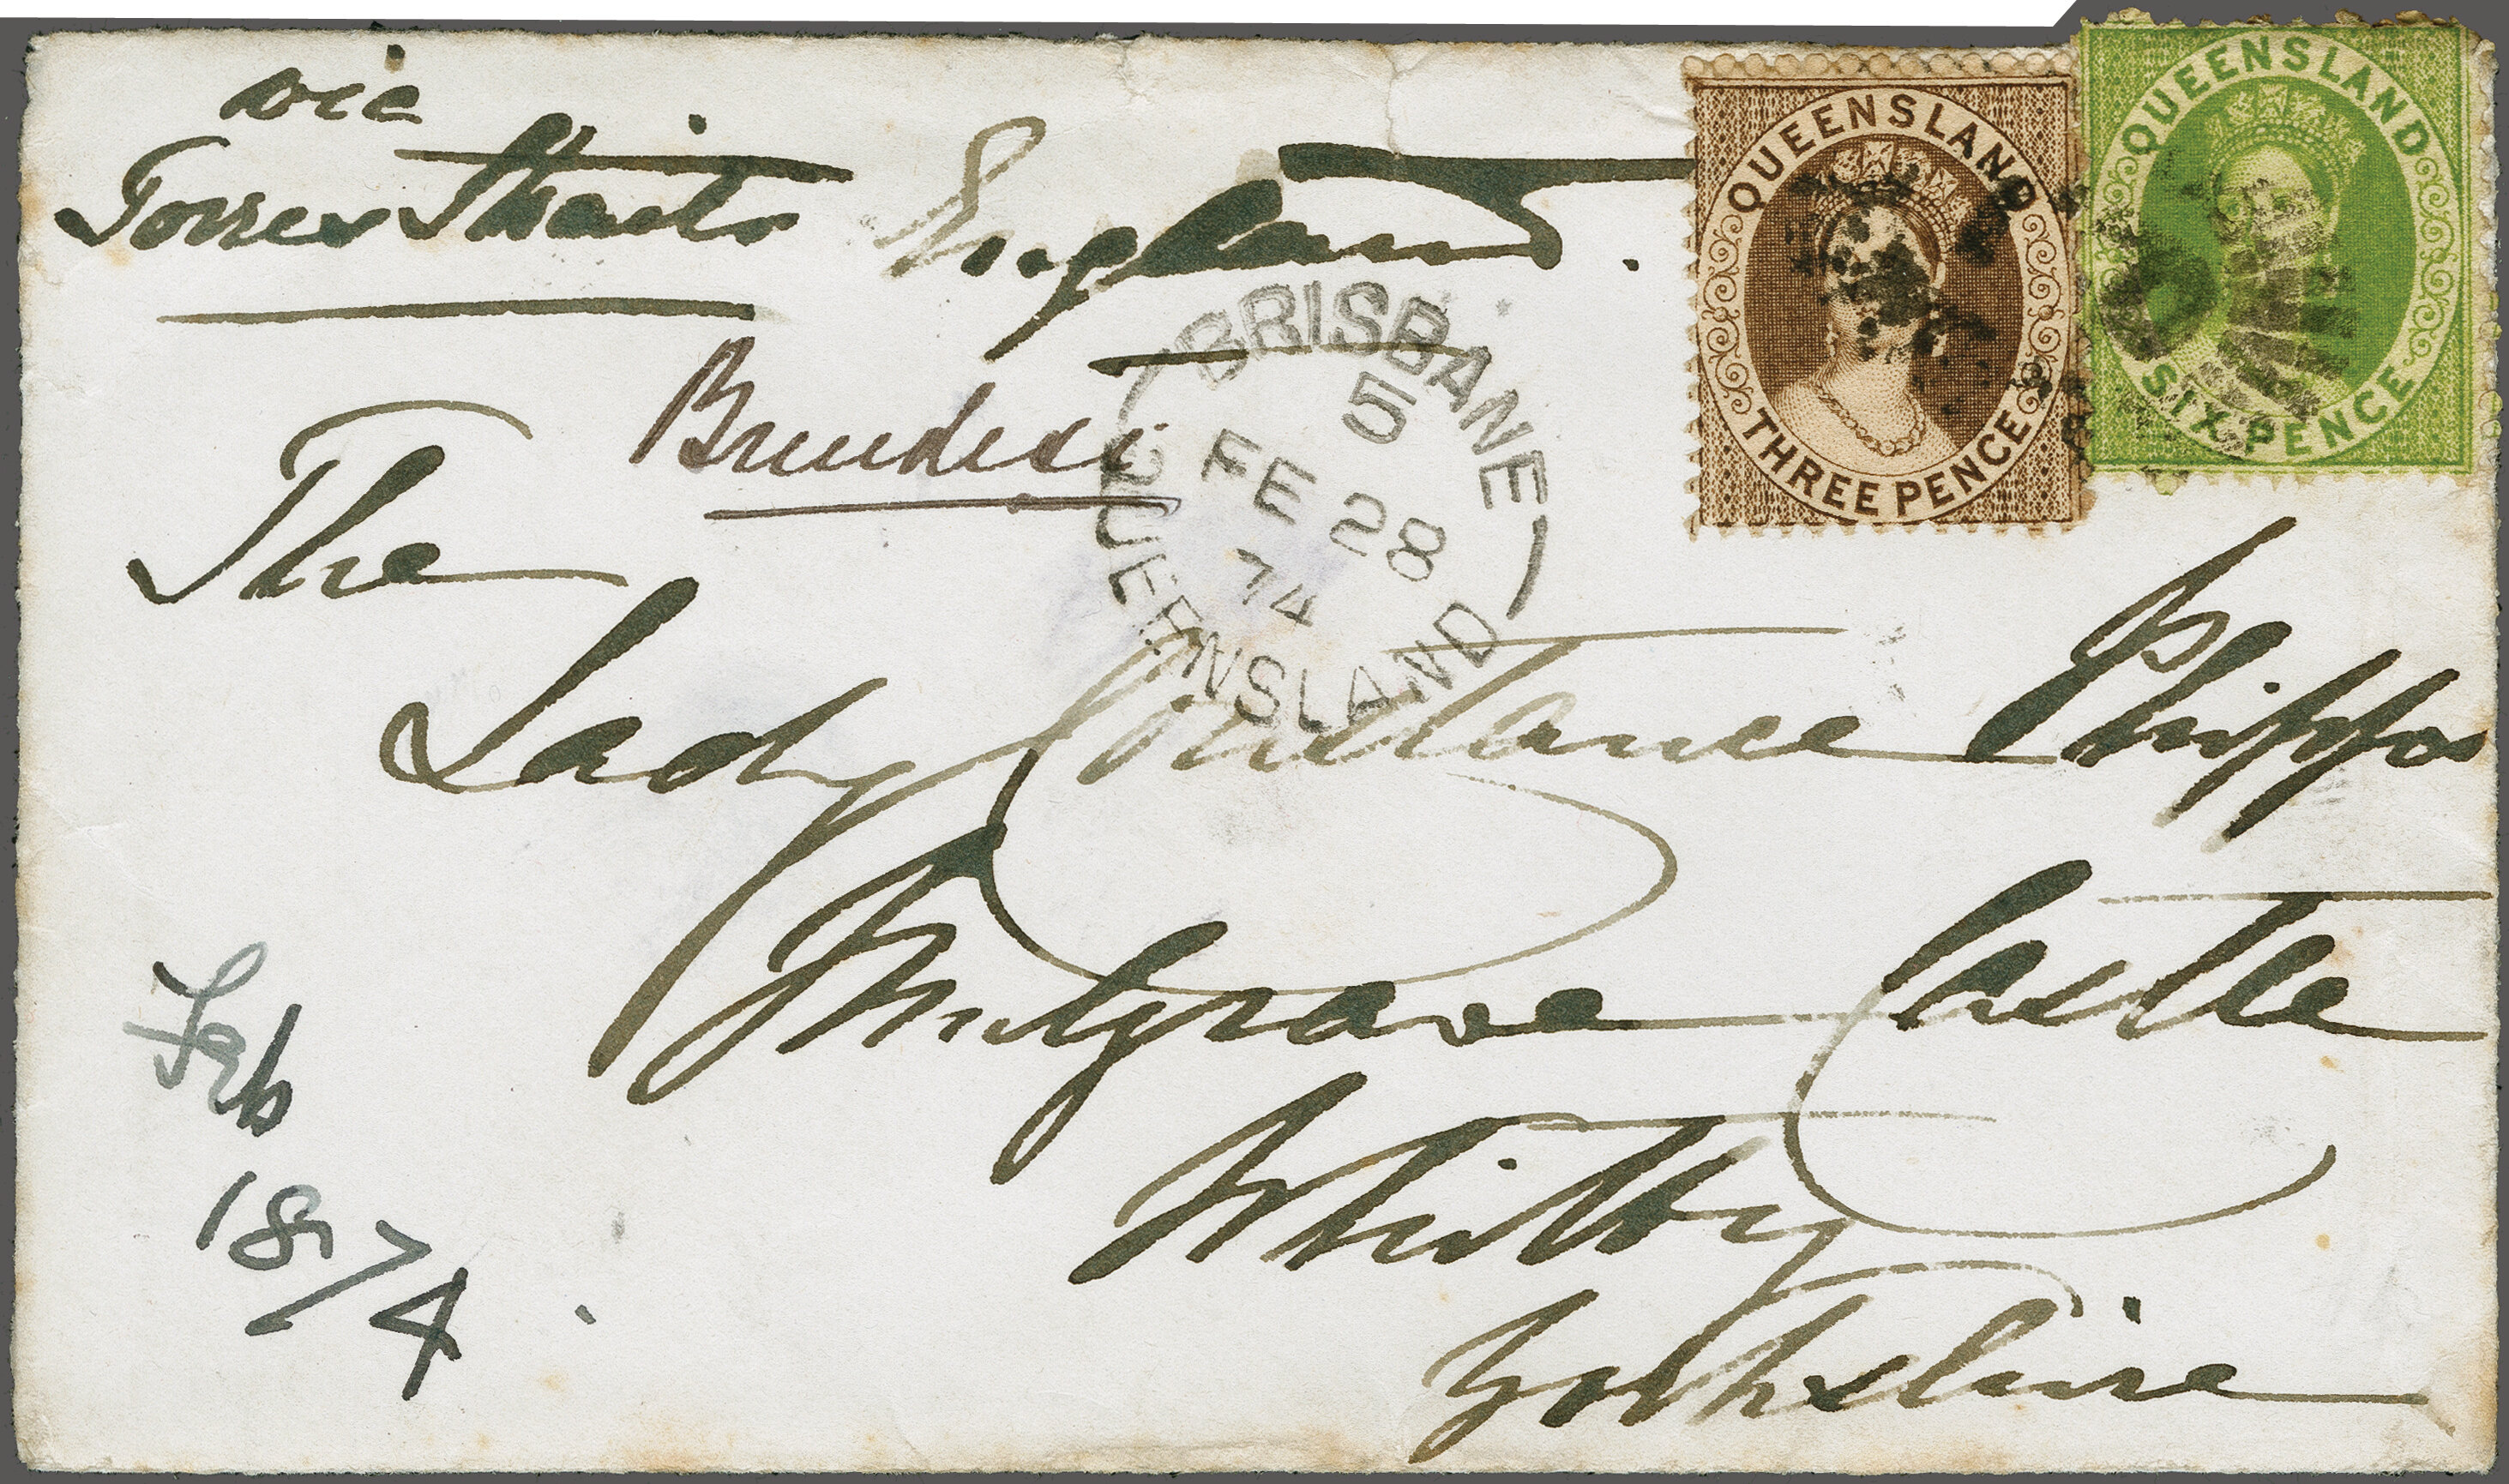 via
Torres Straits England.
Brindisi
The
Lady Constance Phipps
Mulgrave Castle
Whitby
Yorkshire
Feb
1874
BRISBANE
5
FE 28
74
QUEENSLAND
QUEENSLAND
THREE PENCE
QUEENSLAND
SIX PENCE